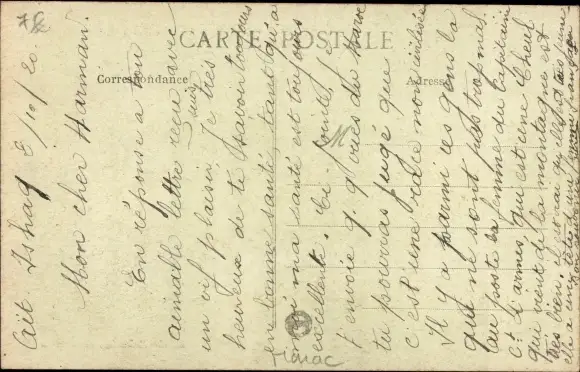 CARTE POSTALE
Correspondance
Adresse
Ait Ishaq 8/10/20.
Mon cher Harman.
En réponse à ton
aimable lettre reçu avec
un vif plaisir. Je suis très
heureux de te savoir toujours
en bonne santé, tant qu'à
moi ma santé est toujours
excellente. Ci-joint, je
t'envoie q.q. vues du Maroc
tu pourras jugé que
c'est une race moin civilisée
Il y a parmi ces gens la
qui ne sont pas trop mal,
au poste la femme du Capitaine
Ct d'armes, qui est une Cheul
qui vient de la montagne est
très bien, il est vrai qu'elle
elle a une femme française